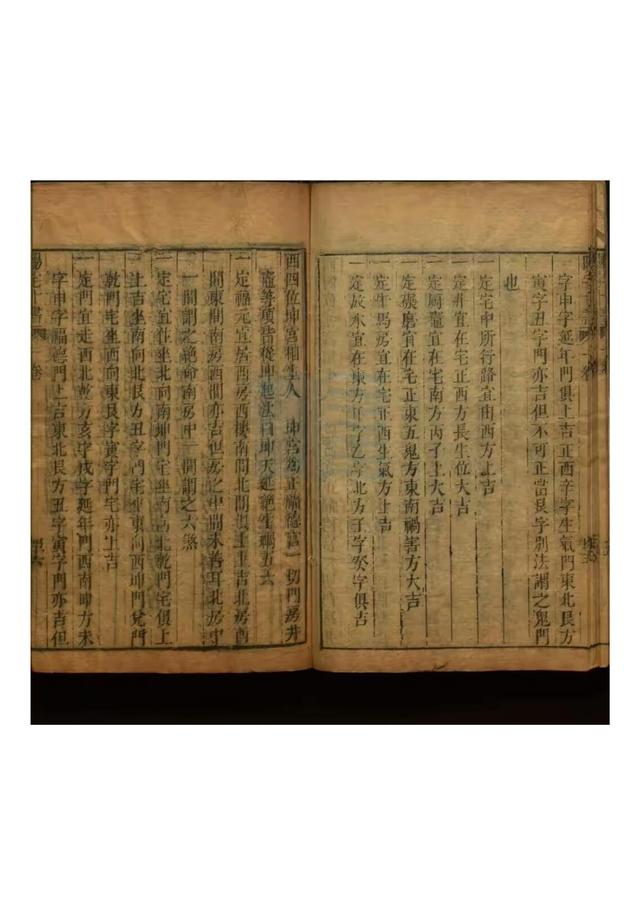 字申字延年門俱上吉正西辛字生氣門東北艮方
寅字丑字門亦吉但不可正當艮字別法謂之鬼門
也
一定宅中所行路宜由西方上吉
一定井宜在宅正西方長生位大吉
一定厨竈宜在宅南方丙子上大吉
一定碾磨宜在宅正東五鬼方東南禍害方大吉
一定牛馬房宜在宅正西生氣方上吉
一定放水宜在東方甲字乙字北方壬字癸字俱吉
西四位坤宮相生人 坤宮為正福德宮一切門房井
竈等項皆從坤起法曰坤天延絕生禍五六
一定福元宜居西房西樓南間北間俱上上吉北房酉
間東間南房西間亦吉但房之中間不善耳北房中
一間謂之絕命南房中一間謂之六煞
一定宅宜在坐北向南坤門宅坐南向北乾門宅俱上
上吉坐南向北艮方丑字門宅坐東向西坤門兌門
乾門宅坐西向東艮字寅字門宅亦上吉
一定門宜走西北乾方亥字戌字延年門西南坤方未
字申字福德門上吉東北艮方丑字寅字門亦吉但
陽宅十書 卷一